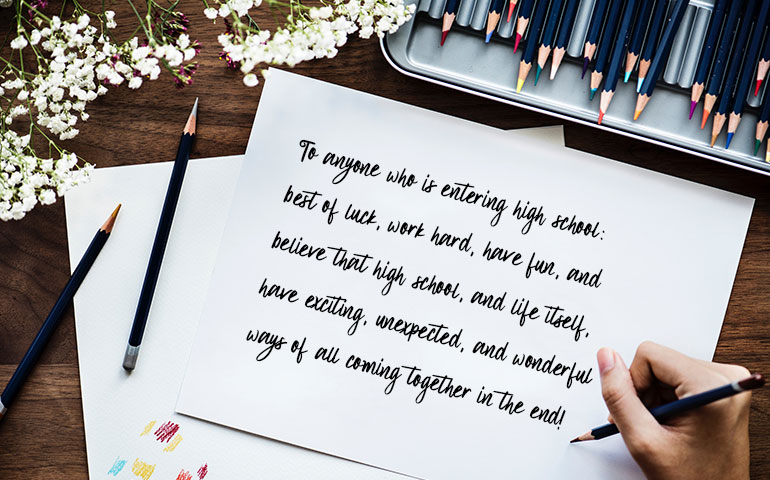 To anyone who is entering high school:
best of luck, work hard, have fun, and
believe that high school, and life itself,
have exciting, unexpected, and wonderful
ways of all coming together in the end!